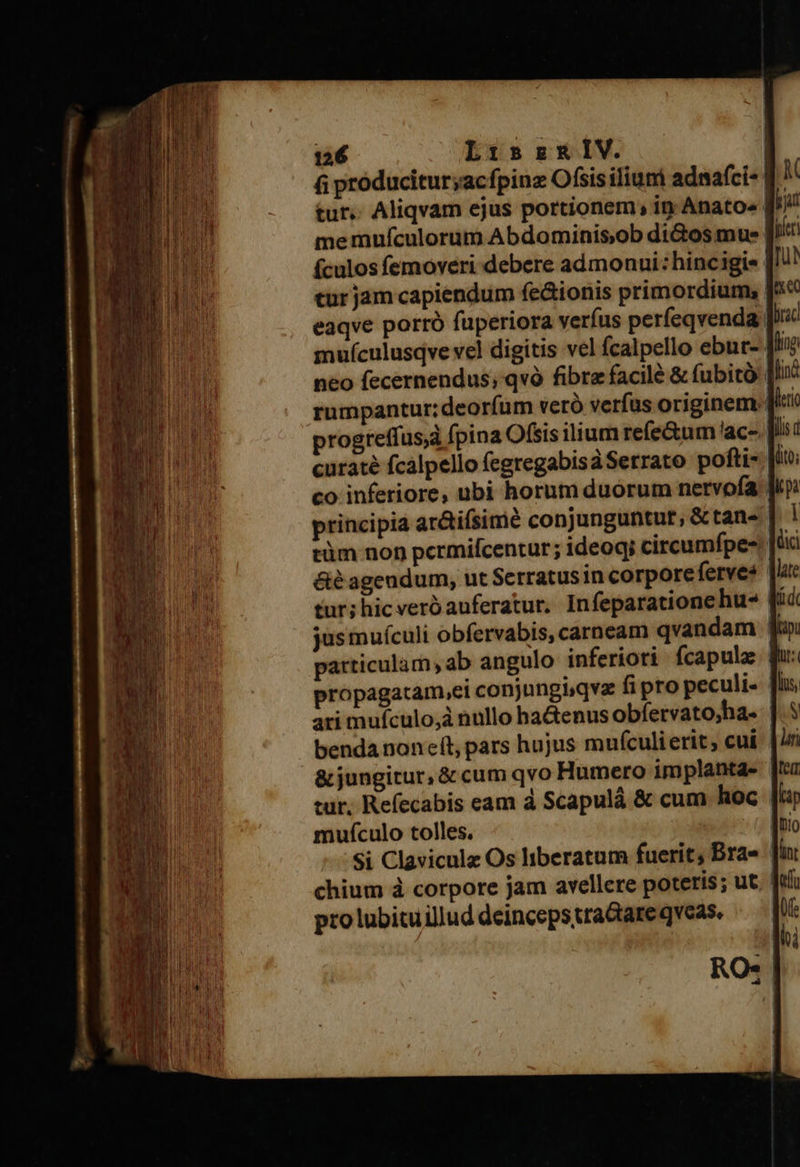 126 LIBER IV.
ſi produciturꝫac ſpinæ Oſsis ilium adnaſci-
tur. Aliqvam ejus portionem, in Anato-
me muſculorum Abdominis, ob dictos mu-
ſculos ſemoveri debere admonui: hinc igi-
tur jam capiendum ſectionis primordium,
eaqve porrò ſuperiora verſus perſeqvenda
muſculusqve vel digitis vel ſcalpello ebur-
neo ſecernendus, qvò fibræ facilè & ſubitò
rumpantur: deorſum verò verſus originem
progreſſus, à ſpina Oſsis ilium reſectum ac-
curatè ſcalpello ſegregabis à Serrato poſti-
co inferiore, ubi horum duorum nervoſa
principia arctiſsimè conjunguntur, & tan-
tùm non permiſcentur; ideoq; circumſpe-
ctè agendum, ut Serratus in corpore ſerve-
tur; hic verò auferatur. In ſeparatione hu-
jus muſculi obſervabis, carneam qvandam
particulam, ab angulo inferiori ſcapulæ
propagatam, ei conjungi, qvæ ſi pro peculi-
ari muſculo, à nullo hactenus obſervato, ha-
benda non eſt, pars hujus muſculi erit, cui
& jungitur, & cum qvo Humero implanta-
tur. Reſecabis eam à Scapulâ & cum hoc
muſculo tolles.
Si Claviculæ Os liberatum fuerit, Bra-
chium à corpore jam avellere poteris; ut
pro lubitu illud deinceps tractare qveas.
RO-